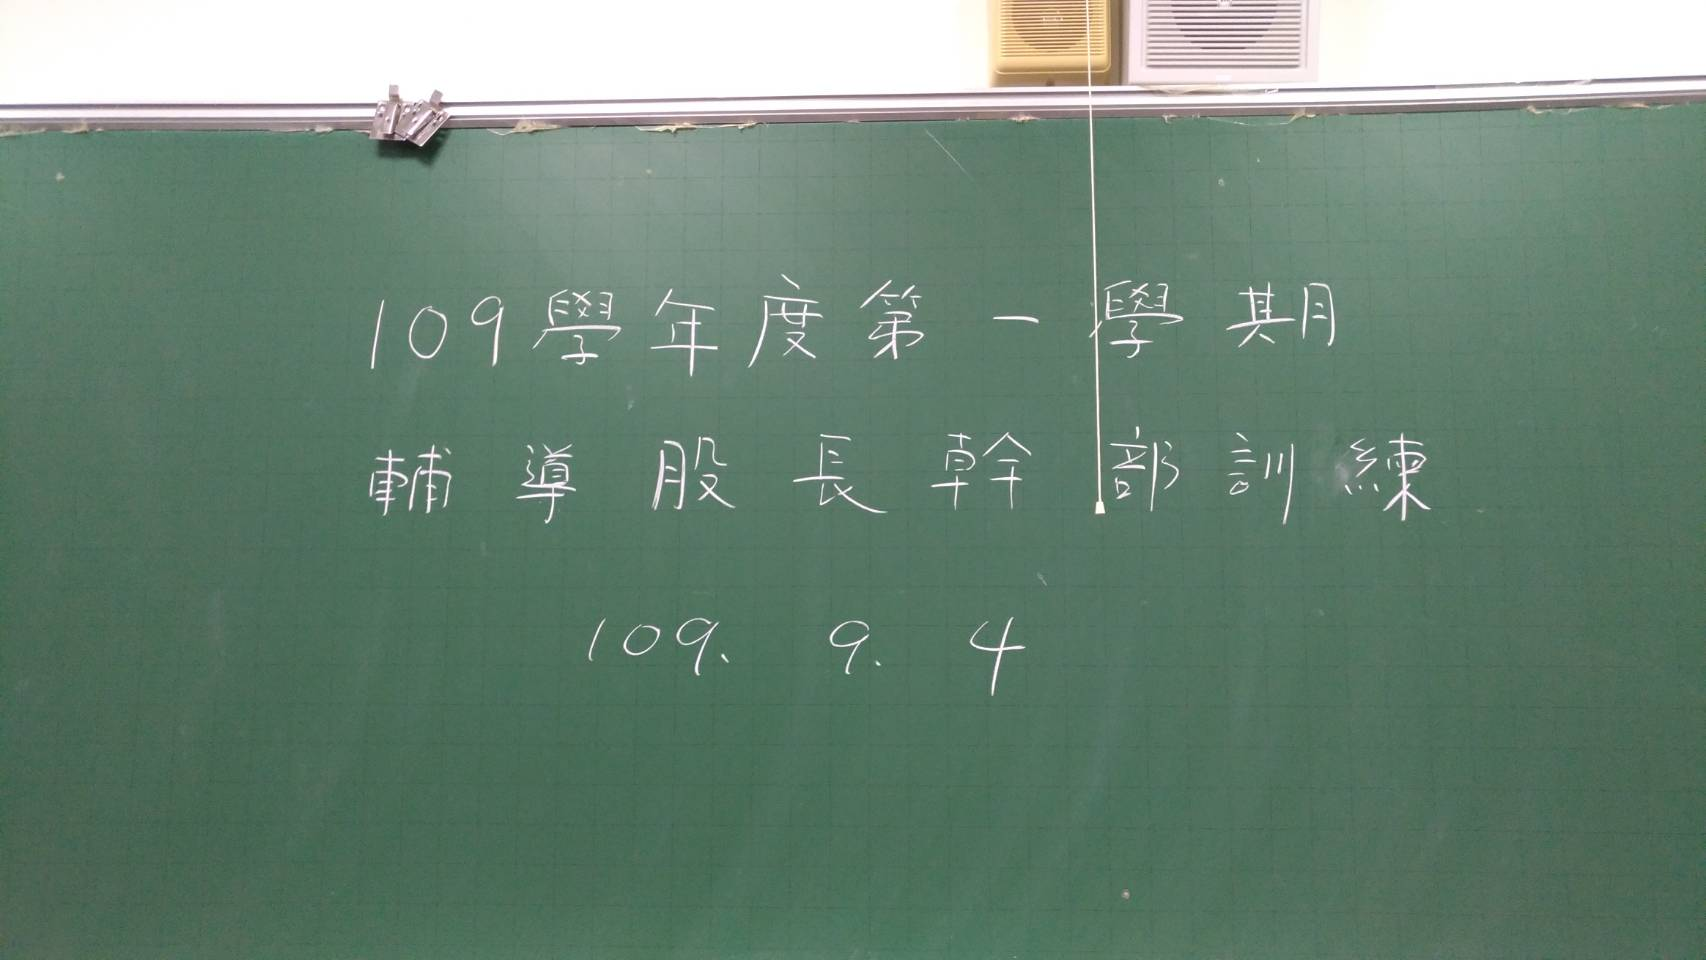 109學年度第一學期
輔導股長幹部訓練
109. 9. 4